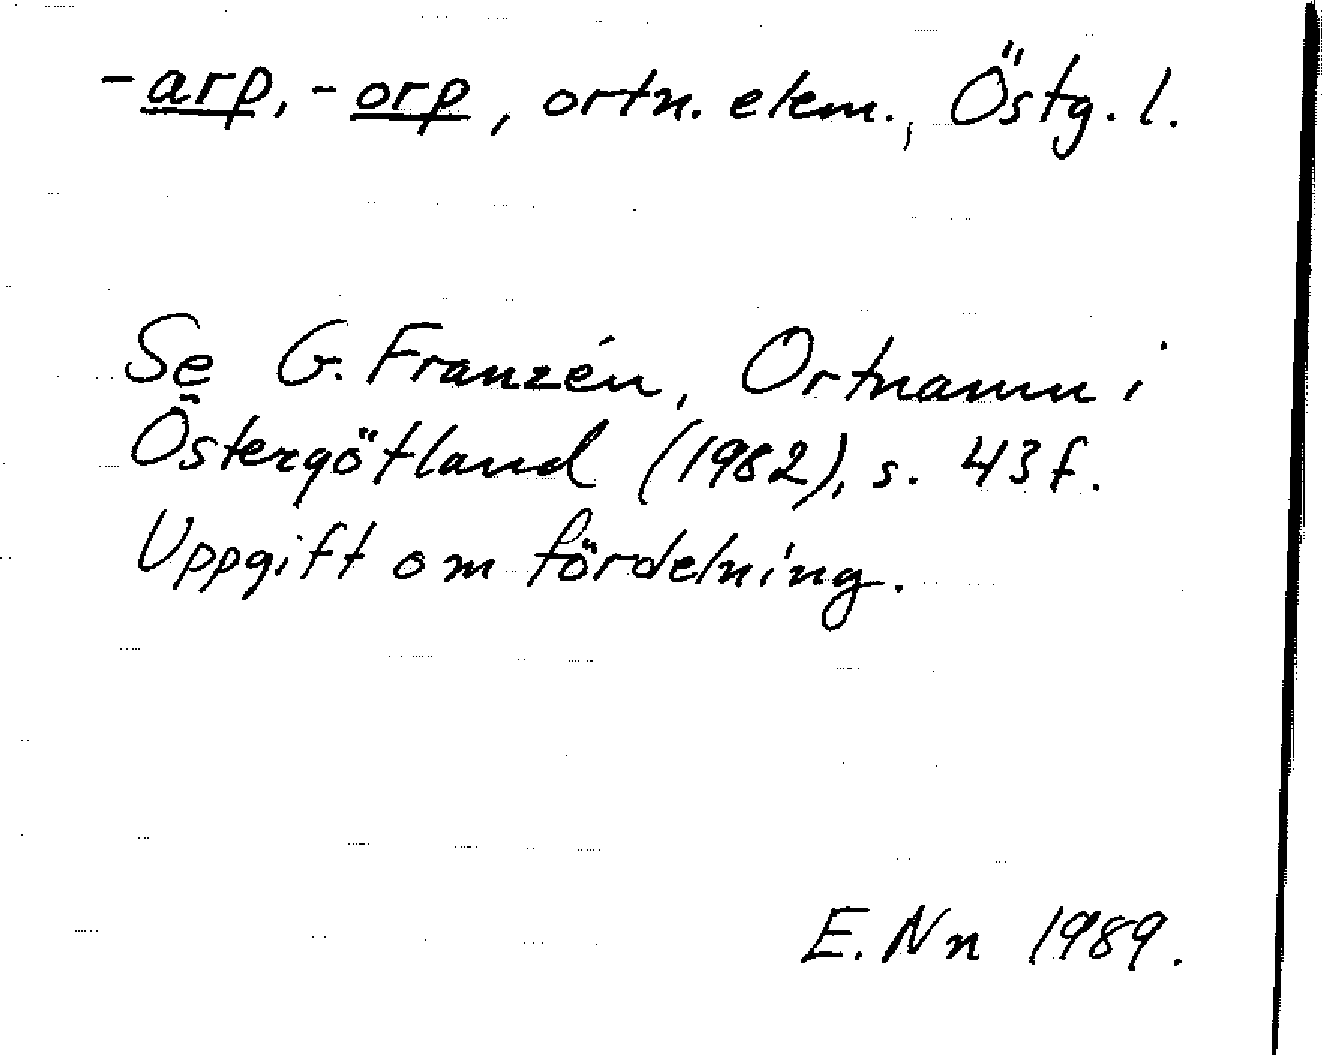 -arp, -orp, ortn. elem., Östg. l.
Se G. Franzén, Ortnamn i
Östergötland (1982), s. 43 f.
Uppgift om fördelning.
E. Nn 1989.